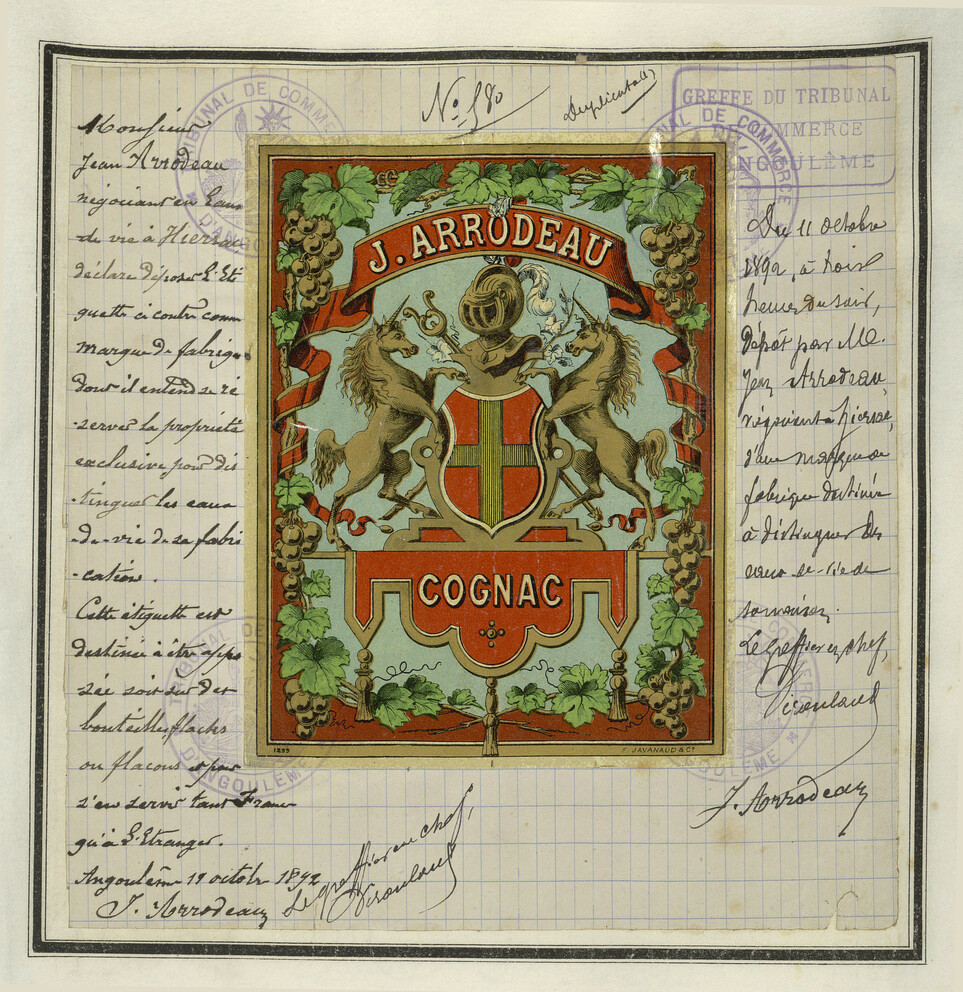 Nº 580
Duplicata
GREFFE DU TRIBUNAL
DE COMMERCE
D'ANGOULÊME
TRIBUNAL DE COMMERCE
D'ANGOULÊME
Monsieur
Jean Arrodeau
négociant en Eaux
de vie à Hiersac
déclare déposer L'Eti
quette ci contre comme
marque de fabrique
dont il entend se ré
-server la propriété
exclusive pour dis
-tinguer les eaux
-de-vie de sa fabri
-cation.
Cette étiquette est
destinée à être appo
sée soit sur des
bouteilles flachs
ou flacons & pour
s'en servir tant France
qu'à L'Etranger.
Angoulême 11 octobr 1892
J. Arrodeau
Le greffier en chef,
J. ARRODEAU
COGNAC
1299
F. JAVANAUD & Cº
Du 11 octobre
1892, à trois
heures du soir,
Dépôt par M.
Jean Arrodeau,
négociant à Hiersac,
d'une marque de
fabrique destinée
à distinguer les
eaux-de-vie de
sa maison.
Le Greffier en chef,
J. Arrodeau
TRIBUNAL DE COMMERCE
D'ANGOULÊME